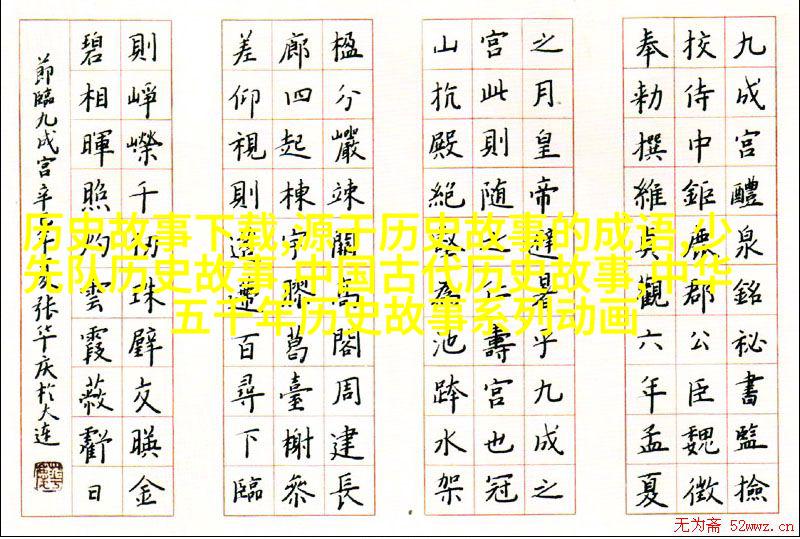 九成宮醴泉銘祕書監撿
挍侍中鉅鹿郡公臣魏徵
奉勅撰維貞觀六年孟夏
之月皇帝避暑乎九成之
宮此則随之仁壽宮也冠
山抗殿絶壑為池跨水架
楹分巖竦闕高閣周建長
廊四起棟宇膠葛臺榭參
差仰視則迢遰百尋下臨
則崢嶸千仞珠璧交暎金
碧相暉照灼雲霞蔽虧日
節臨九成宮辛年夏张华庆於大連
历史故事下载,源于历史故事的成语,少
先队历史故事,中国古代历史故事,中华
五千年历史故事系列动画
无为斋 52wwz.cn